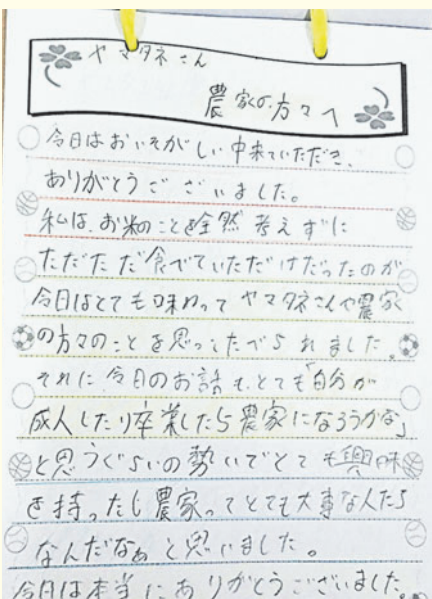 ヤマタネさん
農家の方々へ
今日はおいそがしい中来ていただき、
ありがとうございました。
私は、お米のことを全然考えずに
ただただ食べていただけだったのが
今日はとても味わってヤマタネさんや農家
の方々のことを思ってたべられました。
それに今日のお話も、とても「自分が
成人したり卒業したら農家になろうかな」
と思うぐらいの勢いでとても興味
を持ったし農家ってとても大事な人たち
なんだなぁと思いました。
今日は本当にありがとうございました。